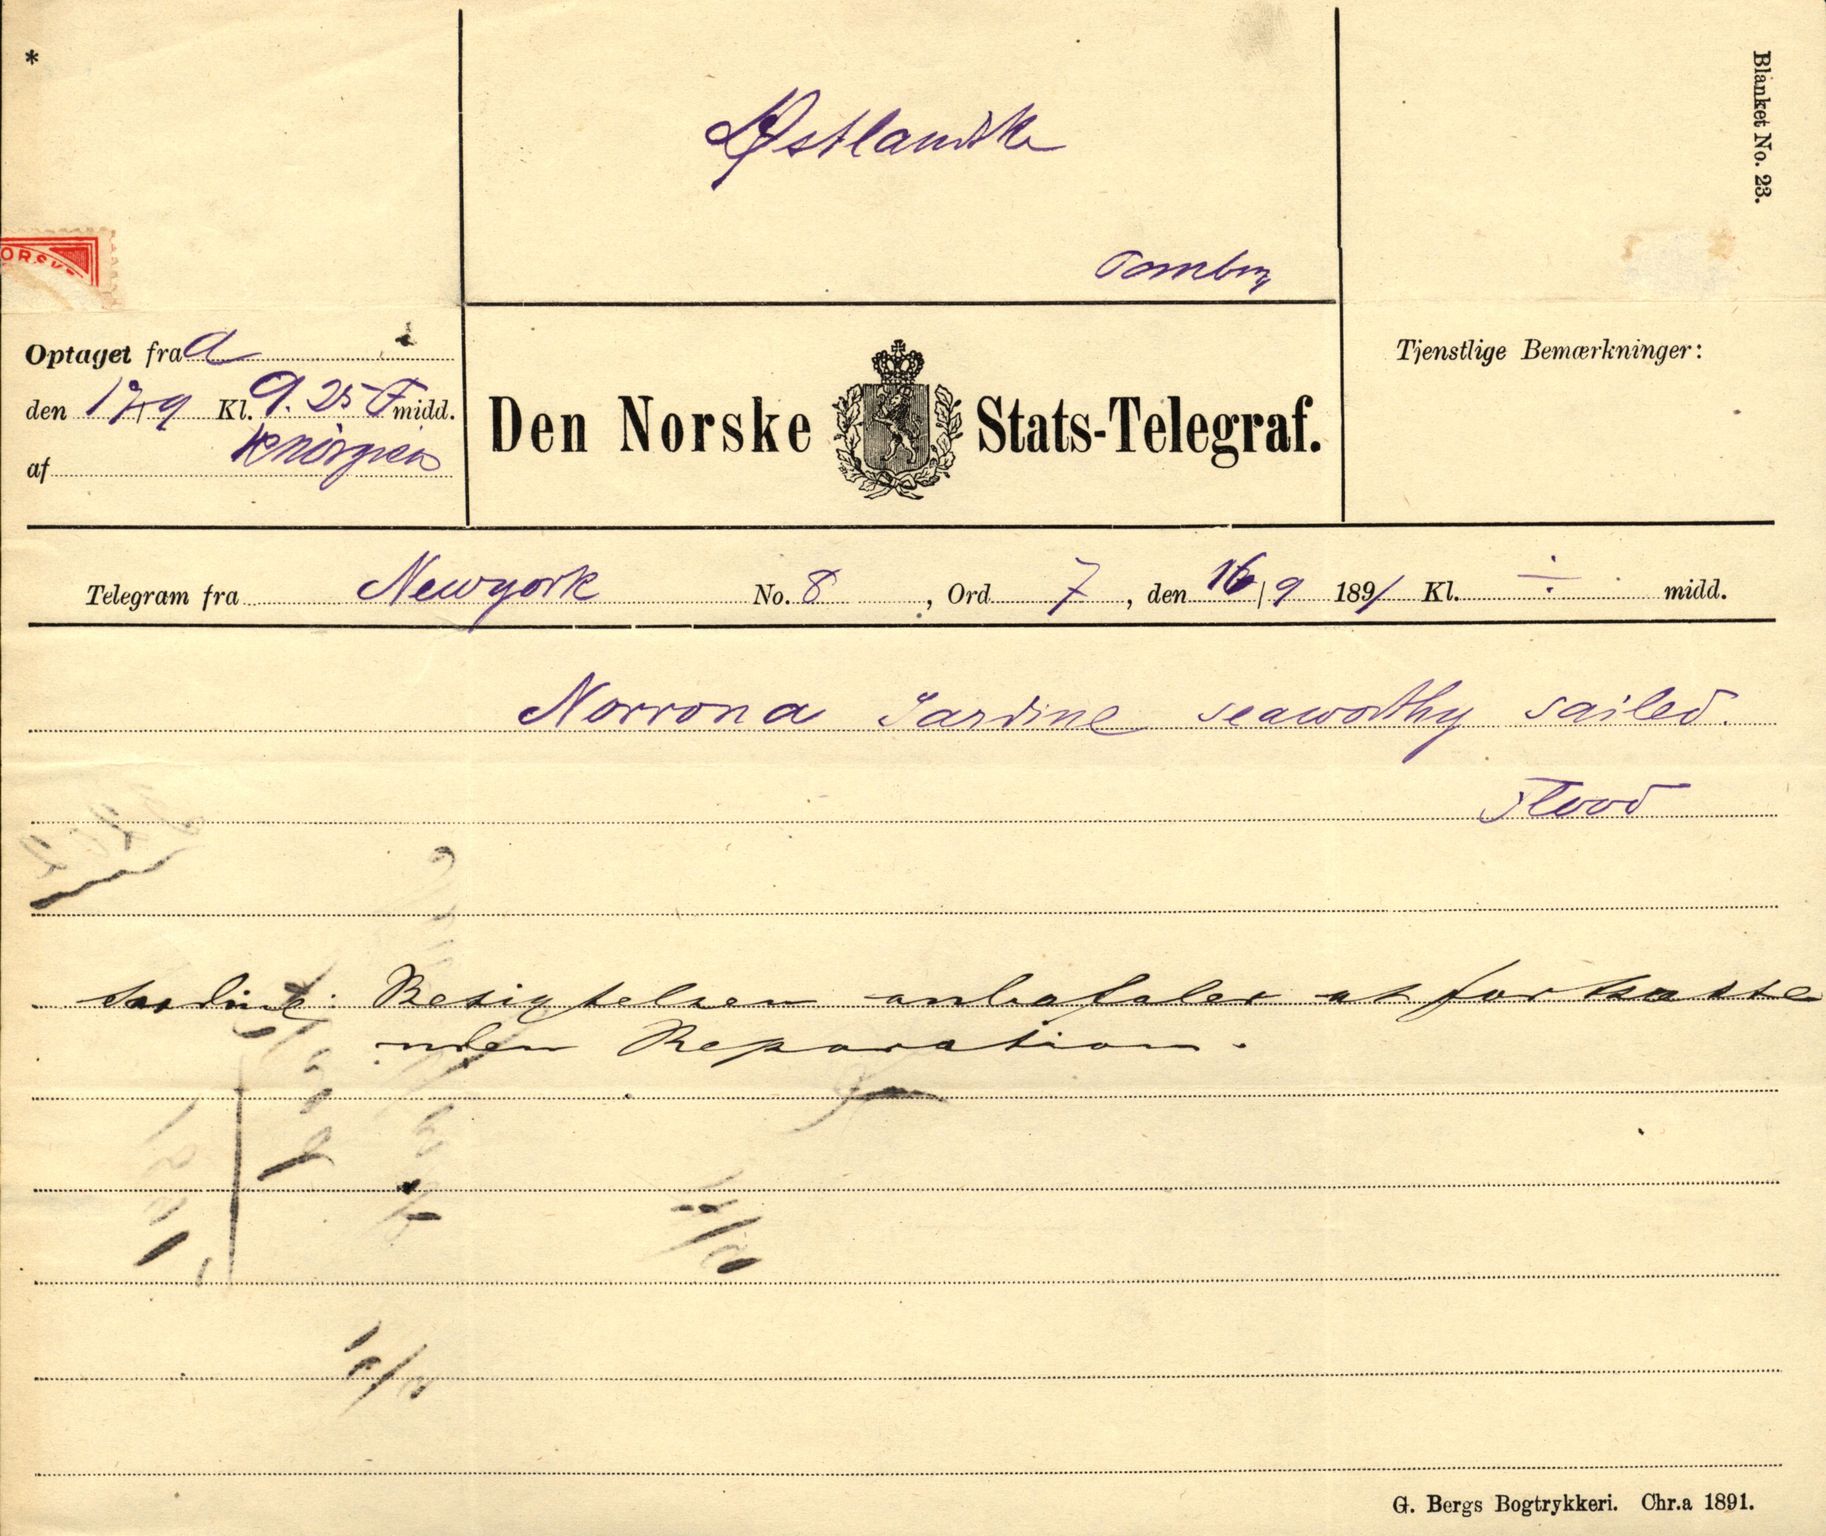 *
Blanket No. 23.
Østlandske
Tønsberg
ORSKE
Optaget fra a
den 17/9 Kl. 9.25 F midd.
af
Den Norske Stats-Telegraf.
Tjenstlige Bemærkninger:
Telegram fra Newyork No. 8, Ord 7, den 16/9 1891 Kl. ÷ midd.
Norrona Sardine seaworthy sailed.
Flood
Sardine: Besigtelsen anbefaler at fortsætte
uden Reparation.
G. Bergs Bogtrykkeri. Chr.a 1891.